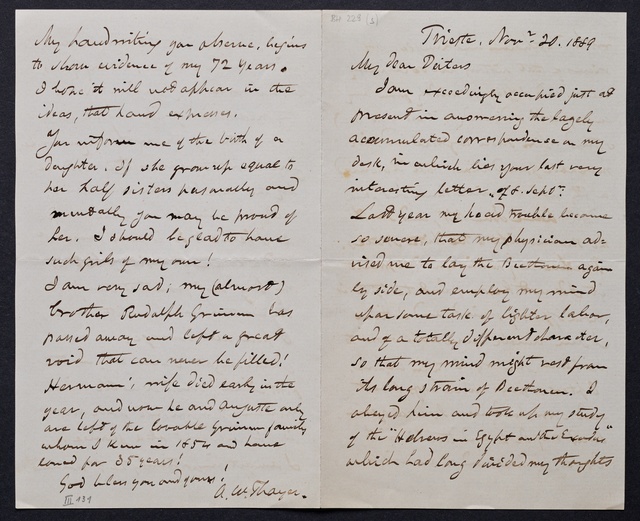 BH 228 (5)
Trieste, Nov.r 20. 1889
My dear Deiters
I am exceedingly occupied just at
present in answering the largely
accumulated correspondence on my
desk, in which lies your last very
interesting letter, of 6. Septr.
Last year my head trouble became
so severe, that my physician ad-
vised me to lay the Beethoven again
by side, and employ my mind
upon some task of lighter labor,
and of a totally different character,
so that my mind might rest from
its long strain of Beethoven. I
obeyed him and took up my study
of the "Hebrews in Egypt and the Exodus"
which had long divided my thoughts
My handwriting you observe, begins
to show evidence of my 72 years.
I hope it will not appear in the
ideas, that hand expresses.
You inform me of the birth of a
daughter. If she grow up equal to
her half sisters personally and
mentally you may be proud of
her. I should be glad to have
such girls of my own!
I am very sad; my (almost)
brother Rudolph Grimm has
passed away and left a great
void that can never be filled!
Hermann's wife died early in the
year, and now he and Auguste only
are left of the lovable Grimm family
whom I knew in 1854 and have
loved for 35 years!
God bless you and yours!
A. W. Thayer.
III 131